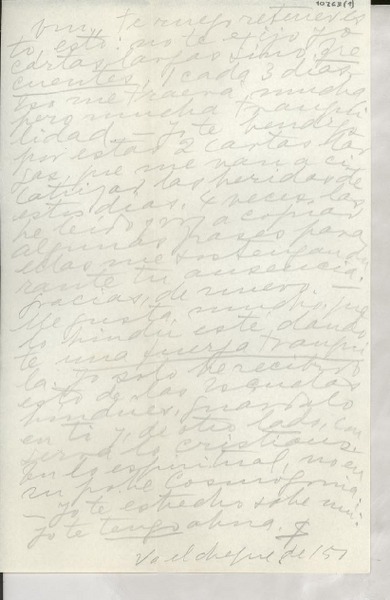 10268(1)
te ruego retener es
to, esto: no te exijo yo
cartas largas sino fre
cuentes, 1 cada 3 días,
eso me traerá mucha
pero mucha tranqui
lidad. — Yo te bendigo
por estas 2 cartas lar
gas, que me van a ci
catrizar las heridas de
estos días. 4 veces las
he leído y voy a copiar
algunas frases para
ellas me sostengan du
rante tu ausencia.
Gracias, de nuevo. —
Me gusta, mucho, que
lo hindú esté dando
te una fuerza tranqui
la. Yo solo he recibido
esto de las escuelas
hindúes, guárdalo
en ti y, de otro lado, con
serva lo cristiano
en lo espiritual, no en
su pobre Cosmogonía.
— Yo te estrecho sobre mí:
Yo te tengo ahora.
Va el cheque de 150